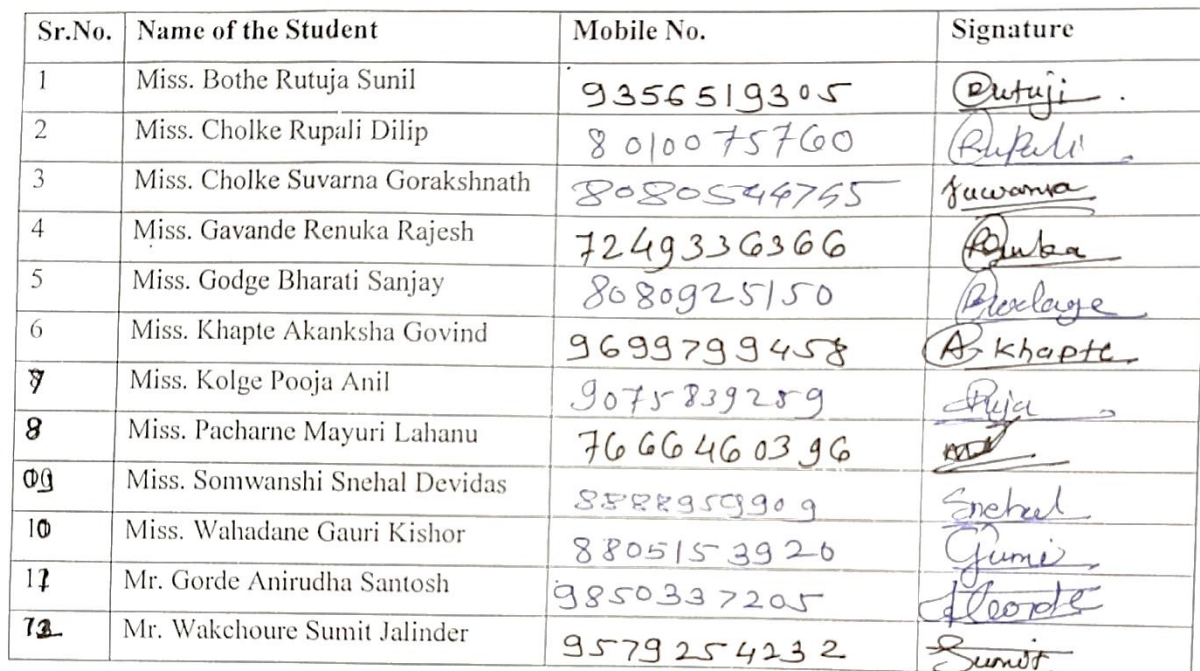 Sr.No. Name of the Student Mobile No. Signature
1 Miss. Bothe Rutuja Sunil 9356519305 Rutuji
2 Miss. Cholke Rupali Dilip 8010075760 Rupali
3 Miss. Cholke Suvarna Gorakshnath 8080544765 Suwarna
4 Miss. Gavande Renuka Rajesh 7249336366
5 Miss. Godge Bharati Sanjay 8080925150
6 Miss. Khapte Akanksha Govind 9699799458 A. Khapte
7 Miss. Kolge Pooja Anil 9075839259 Puja
8 Miss. Pacharne Mayuri Lahanu 7666460396
09 Miss. Somwanshi Snehal Devidas 8888959909 Snehal
10 Miss. Wahadane Gauri Kishor 8805153920
11 Mr. Gorde Anirudha Santosh 9850337205
12 Mr. Wakchoure Sumit Jalinder 9579254232 Sumit